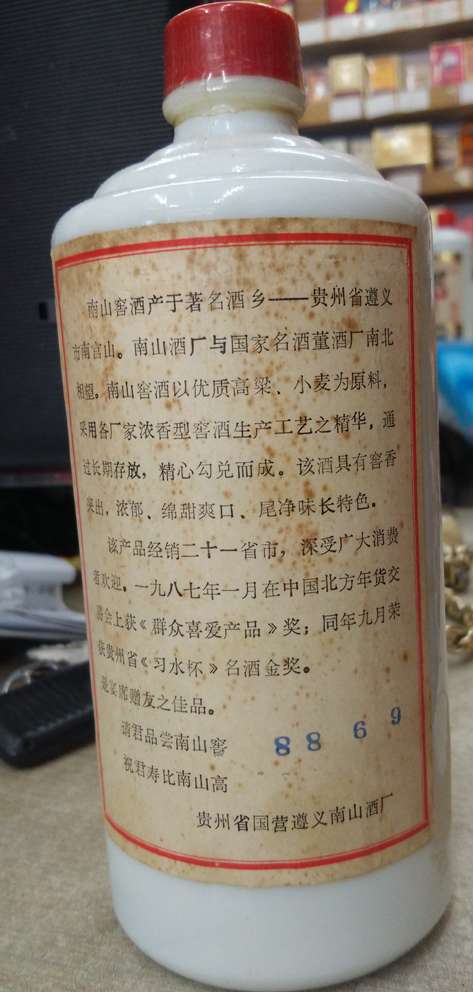 南山窖酒产于著名酒乡——贵州省遵义
市南宫山。南山酒厂与国家名酒董酒厂南北
相望。南山窖酒以优质高粱、小麦为原料，
采用各厂家浓香型窖酒生产工艺之精华，通
过长期存放，精心勾兑而成。该酒具有窖香
突出，浓郁、绵甜爽口、尾净味长特色。
该产品经销二十一省市，深受广大消费
者欢迎。一九八七年一月在中国北方年货交
易会上获《群众喜爱产品》奖；同年九月荣
获贵州省《习水杯》名酒金奖。
是宴席赠友之佳品。
请君品尝南山窖
祝君寿比南山高
88 6 9
贵州省国营遵义南山酒厂